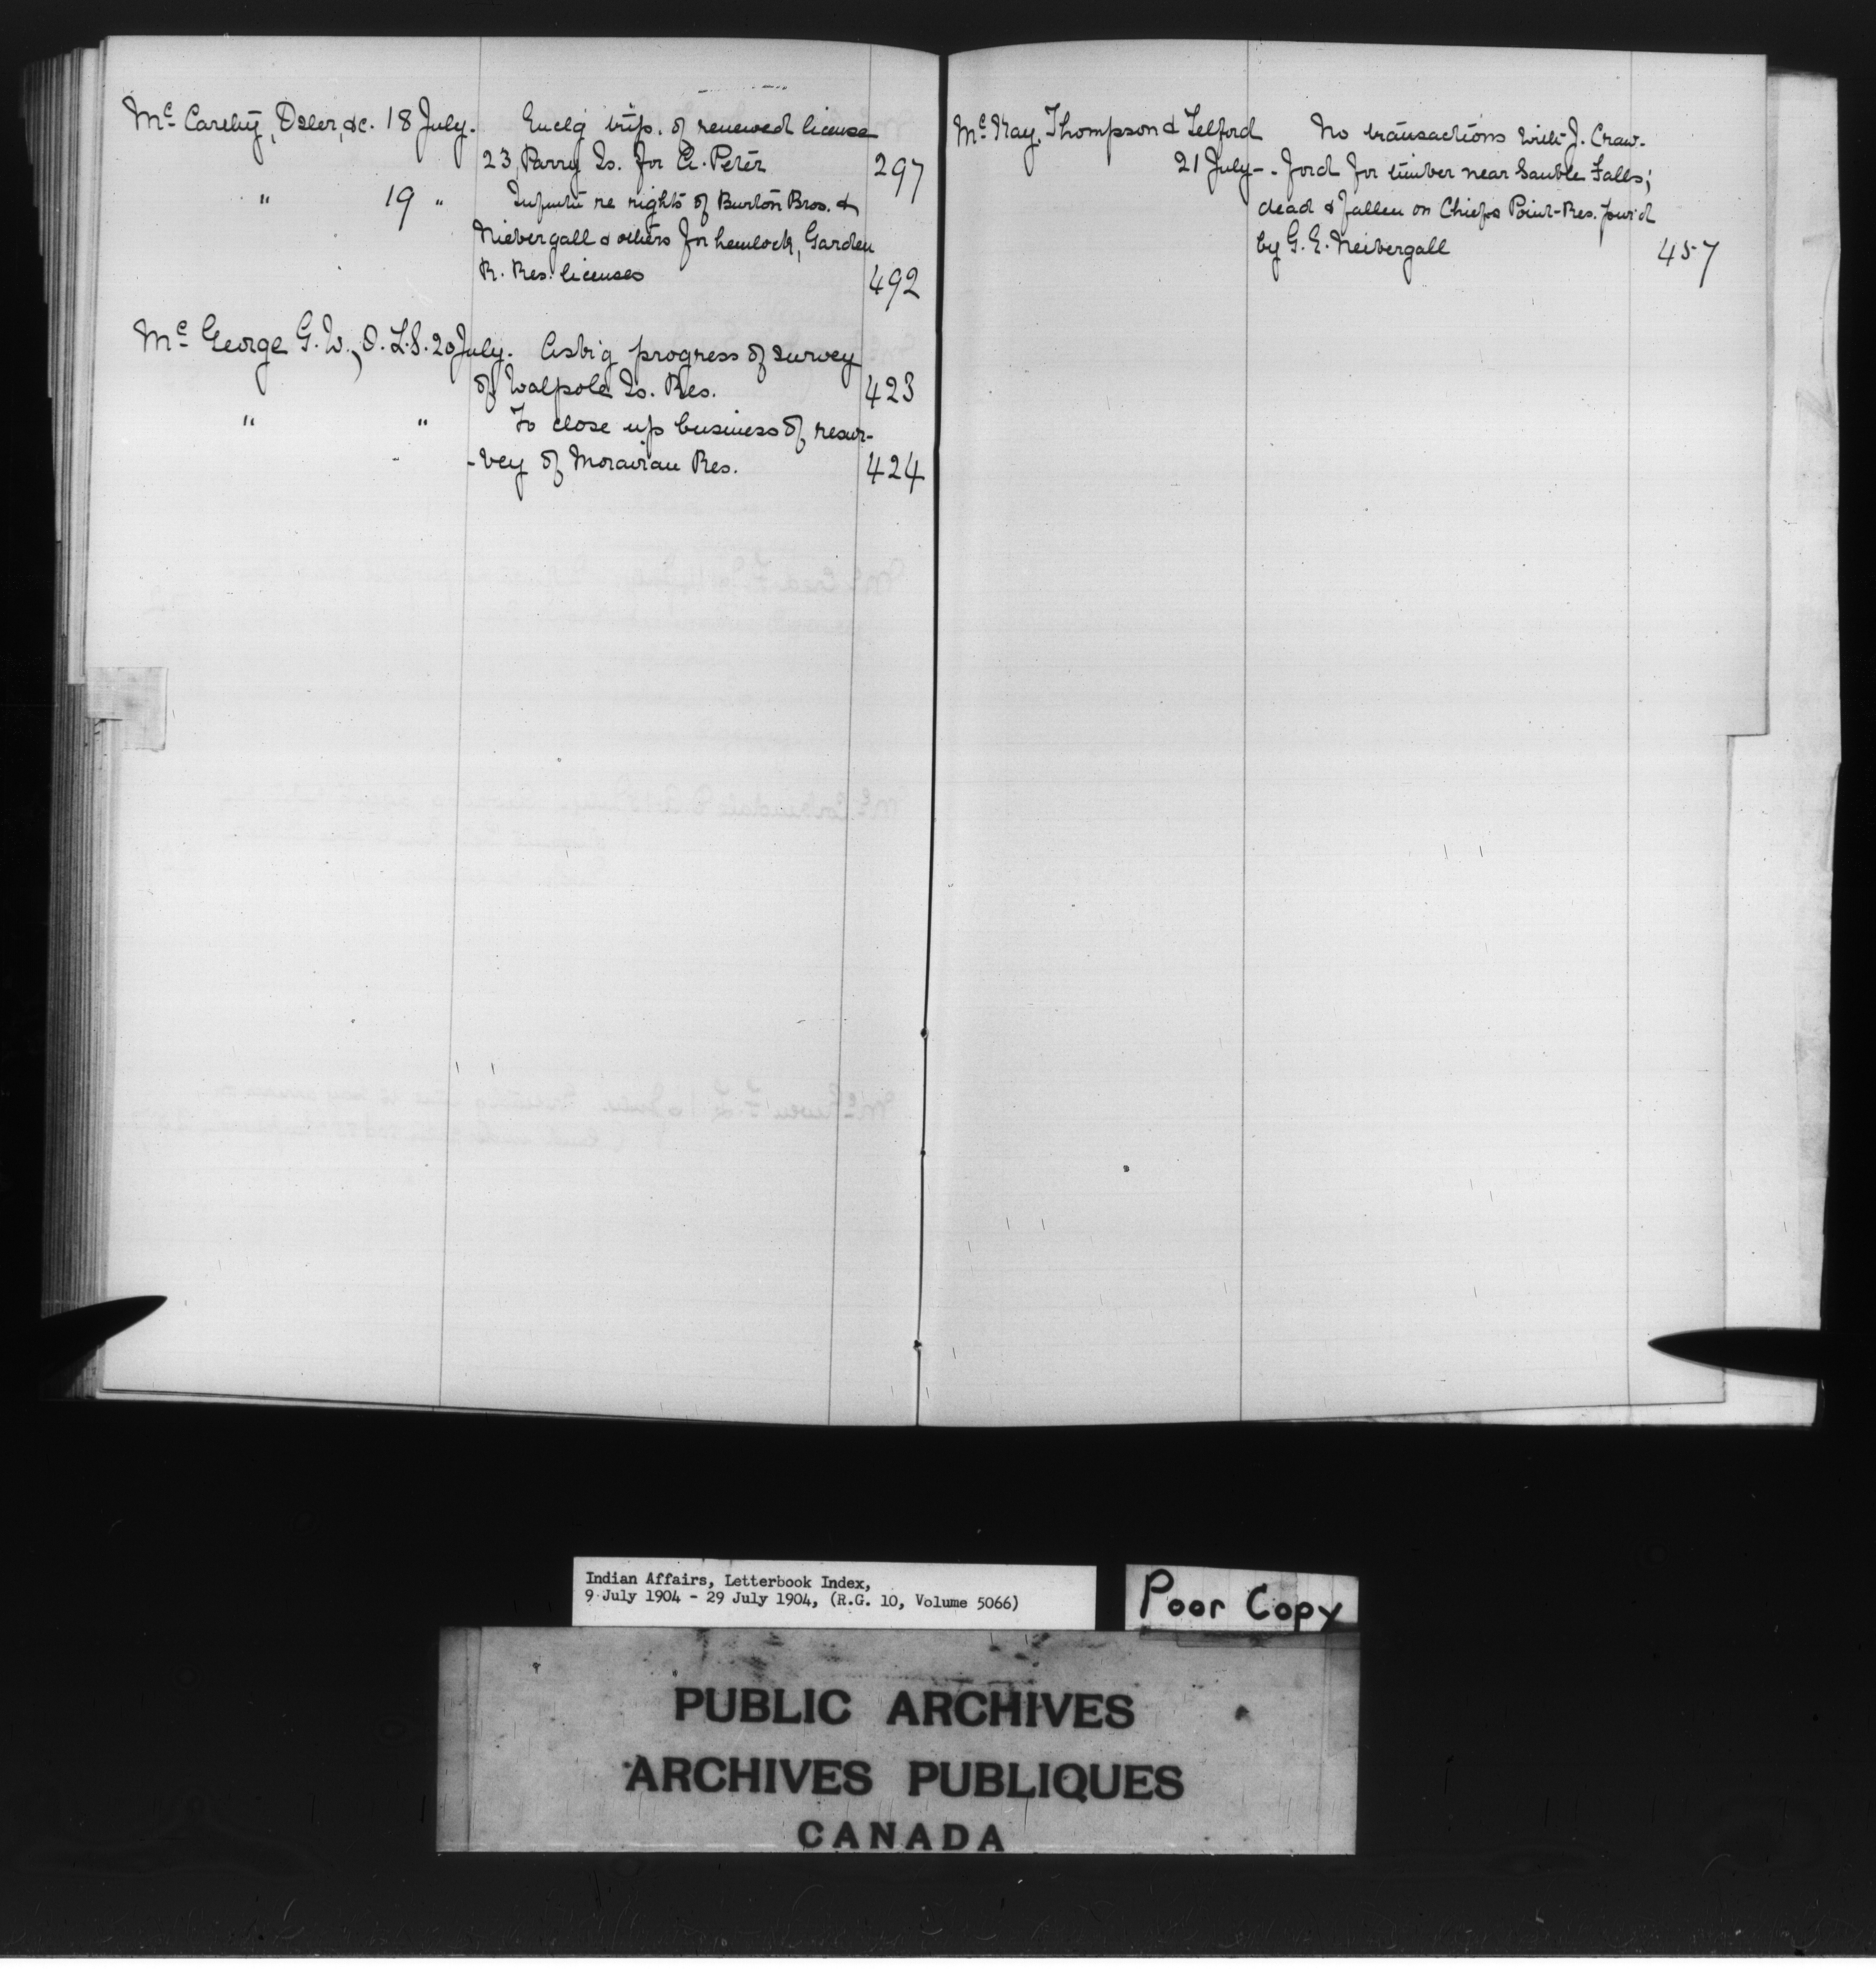 Mc Carthy, Osler, &c. 18 July. Enclg trip. of renewed license
23, Parry Is. for A. Peter 297
" 19 " Infmtn re rights of Burton Bros. &
Niebergall & others for hemlock, Garden
R. Res. licenses 492
Mc George G. W., O. L. S. 20 July. Askg progress of survey
of Walpole Is. Res. 423
" " To close up business of resur-
-vey of Moravian Res. 424
Mc Kay, Thompson & Telford No transactions with J. Craw-
21 July - - ford for timber near Sauble Falls;
dead & fallen on Chiefs Point Res. purd
by G. E. Neibergall 457
Indian Affairs, Letterbook Index,
9 July 1904 - 29 July 1904, (R.G. 10, Volume 5066)
Poor Copy
PUBLIC ARCHIVES
ARCHIVES PUBLIQUES
CANADA